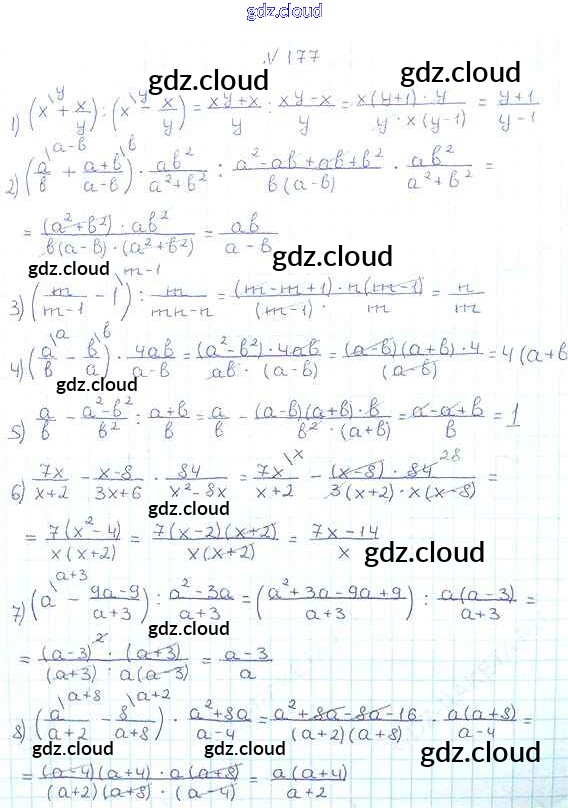 gdz.cloud
№ 177
gdz.cloud gdz.cloud
1) (x\y + x/y) : (x\y − x/y) = (xy+x)/y : (xy−x)/y = (x(y+1)·y)/(y·x(y−1)) = (y+1)/(y−1)
gdz.cloud gdz.cloud
2) (a/b\a−b + (a+b)/(a−b)\b) · ab²/(a²+b²) : (a²−ab+ab+b²)/(b(a−b)) · ab²/(a²+b²) =
= ((a²+b²)·ab²)/(b(a−b)·(a²+b²)) = ab/(a−b)
gdz.cloud gdz.cloud
3) (m/(m−1) − 1\m−1) : m/(mn−n) = ((m−m+1)·n(m−1))/((m−1)·m) = n/m
gdz.cloud
4) (a/b\a − b/a\b) · 4ab/(a−b) = ((a²−b²)·4ab)/(ab·(a−b)) = ((a−b)(a+b)·4)/(a−b) = 4(a+b
gdz.cloud gdz.cloud
5) a/b − (a²−b²)/b² : (a+b)/b = a/b − ((a−b)(a+b)·b)/(b²·(a+b)) = (a−a+b)/b = 1
gdz.cloud
6) 7x/(x+2) − (x−8)/(3x+6) · 84/(x²−8x) = 7x/(x+2)\x − ((x−8)·84 28)/(3(x+2)·x(x−8)) =
gdz.cloud
= (7(x²−4))/(x(x+2)) = (7(x−2)(x+2))/(x(x+2)) = (7x−14)/x
gdz.cloud
7) (a\a+3 − (9a−9)/(a+3)) : (a²−3a)/(a+3) = ((a²+3a−9a+9)/(a+3)) : (a(a−3))/(a+3) =
gdz.cloud gdz.cloud
= ((a−3)²·(a+3))/((a+3)·a(a−3)) = (a−3)/a
8) (a/(a+2)\a+8 − 8/(a+8)\a+2) · (a²+8a)/(a−4) = (a²+8a−8a−16)/((a+2)(a+8)) · (a(a+8))/(a−4) =
gdz.cloud gdz.cloud
= ((a−4)(a+4)·a(a+8))/((a+2)(a+8)·(a−4)) = (a(a+4))/(a+2)